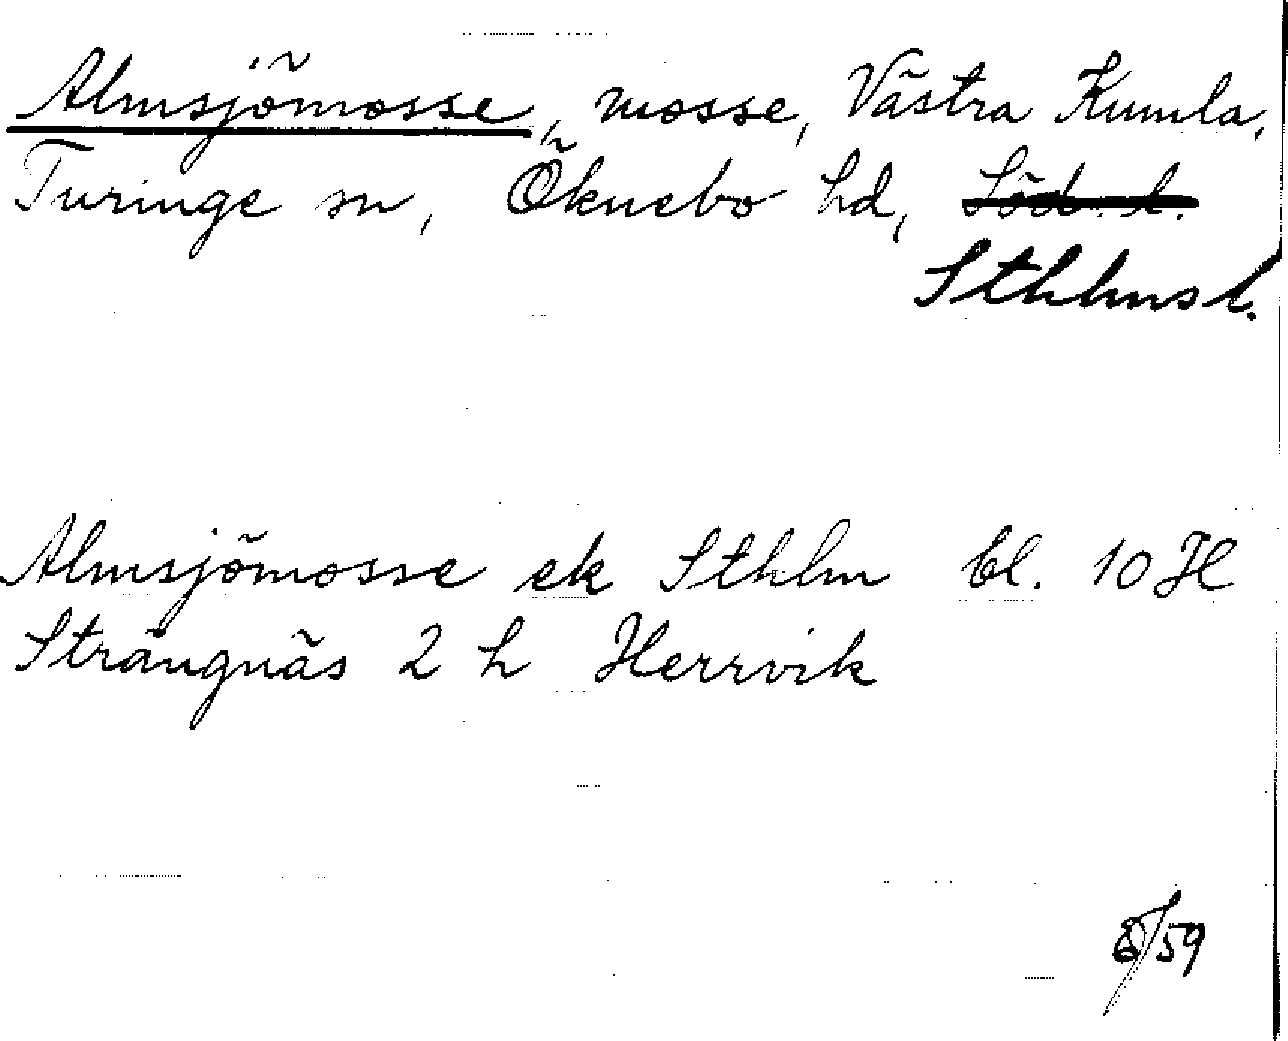 Almsjömosse, mosse, Västra Kumla,
Turinge sn, Öknebo hd, Söd. l.
Sthlms l.
Almsjömosse ek Sthlm bl. 10 H
Strängnäs 2 h Herrvik
8/59